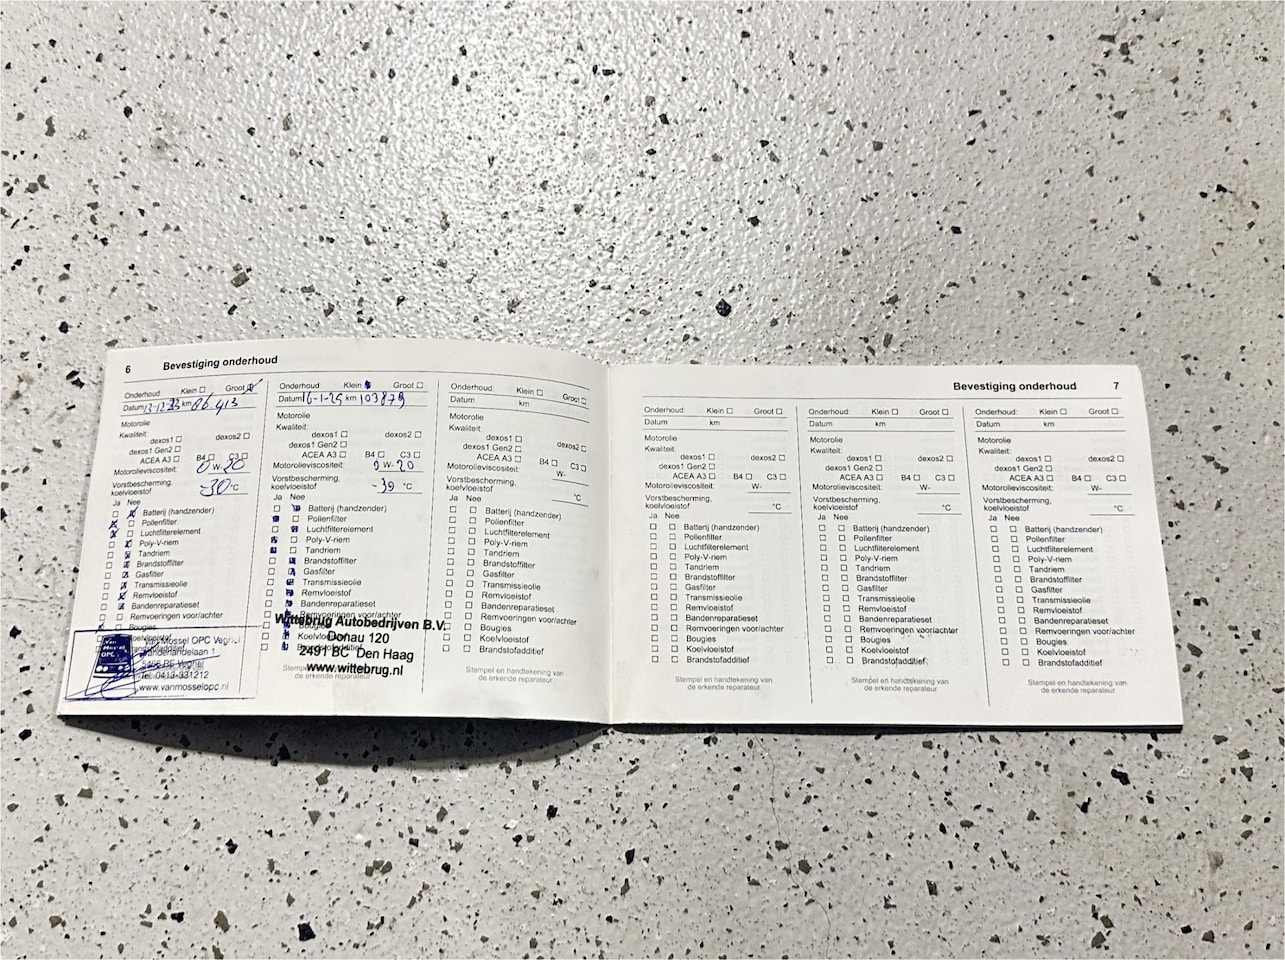 6 Bevestiging onderhoud
Onderhoud: Klein Groot
Datum km 86 413
Motorolie
Kwaliteit:
dexos1 dexos2
dexos1 Gen2
ACEA A3 B4 C3
Motorolieviscositeit: 0 W-20
Vorstbescherming,
koelvloeistof -30 °C
Ja Nee
Batterij (handzender)
Pollenfilter
Luchtfilterelement
Poly-V-riem
Tandriem
Brandstoffilter
Gasfilter
Transmissieolie
Remvloeistof
Bandenreparatieset
Remvoeringen voor/achter
Bougies
Van Mossel OPC Veghel
Tel. 0413-331212
www.vanmosselopc.nl
Onderhoud: Klein Groot
Datum 16-1-25 km 103879
Motorolie
Kwaliteit:
dexos1 dexos2
dexos1 Gen2
ACEA A3 B4 C3
Motorolieviscositeit: 0 W-20
Vorstbescherming,
koelvloeistof -39 °C
Ja Nee
Batterij (handzender)
Pollenfilter
Luchtfilterelement
Poly-V-riem
Tandriem
Brandstoffilter
Gasfilter
Transmissieolie
Remvloeistof
Bandenreparatieset
Remvoeringen voor/achter
Wittebrug Autobedrijven B.V.
Donau 120
2491 BC Den Haag
www.wittebrug.nl
Onderhoud: Klein Groot
Datum km
Motorolie
Kwaliteit:
dexos1 dexos2
dexos1 Gen2
ACEA A3 B4 C3
Motorolieviscositeit: W-
Vorstbescherming,
koelvloeistof °C
Ja Nee
Batterij (handzender)
Pollenfilter
Luchtfilterelement
Poly-V-riem
Tandriem
Brandstoffilter
Gasfilter
Transmissieolie
Remvloeistof
Bandenreparatieset
Remvoeringen voor/achter
Bougies
Koelvloeistof
Brandstofadditief
Stempel en handtekening van
de erkende reparateur
Bevestiging onderhoud 7
Onderhoud: Klein Groot
Datum km
Motorolie
Kwaliteit:
dexos1 dexos2
dexos1 Gen2
ACEA A3 B4 C3
Motorolieviscositeit: W-
Vorstbescherming,
koelvloeistof °C
Ja Nee
Batterij (handzender)
Pollenfilter
Luchtfilterelement
Poly-V-riem
Tandriem
Brandstoffilter
Gasfilter
Transmissieolie
Remvloeistof
Bandenreparatieset
Remvoeringen voor/achter
Bougies
Koelvloeistof
Brandstofadditief
Stempel en handtekening van
de erkende reparateur
Onderhoud: Klein Groot
Datum km
Motorolie
Kwaliteit:
dexos1 dexos2
dexos1 Gen2
ACEA A3 B4 C3
Motorolieviscositeit: W-
Vorstbescherming,
koelvloeistof °C
Ja Nee
Batterij (handzender)
Pollenfilter
Luchtfilterelement
Poly-V-riem
Tandriem
Brandstoffilter
Gasfilter
Transmissieolie
Remvloeistof
Bandenreparatieset
Remvoeringen voor/achter
Bougies
Koelvloeistof
Brandstofadditief
Stempel en handtekening van
de erkende reparateur
Onderhoud: Klein Groot
Datum km
Motorolie
Kwaliteit:
dexos1 dexos2
dexos1 Gen2
ACEA A3 B4 C3
Motorolieviscositeit: W-
Vorstbescherming,
koelvloeistof °C
Ja Nee
Batterij (handzender)
Pollenfilter
Luchtfilterelement
Poly-V-riem
Tandriem
Brandstoffilter
Gasfilter
Transmissieolie
Remvloeistof
Bandenreparatieset
Remvoeringen voor/achter
Bougies
Koelvloeistof
Brandstofadditief
Stempel en handtekening van
de erkende reparateur